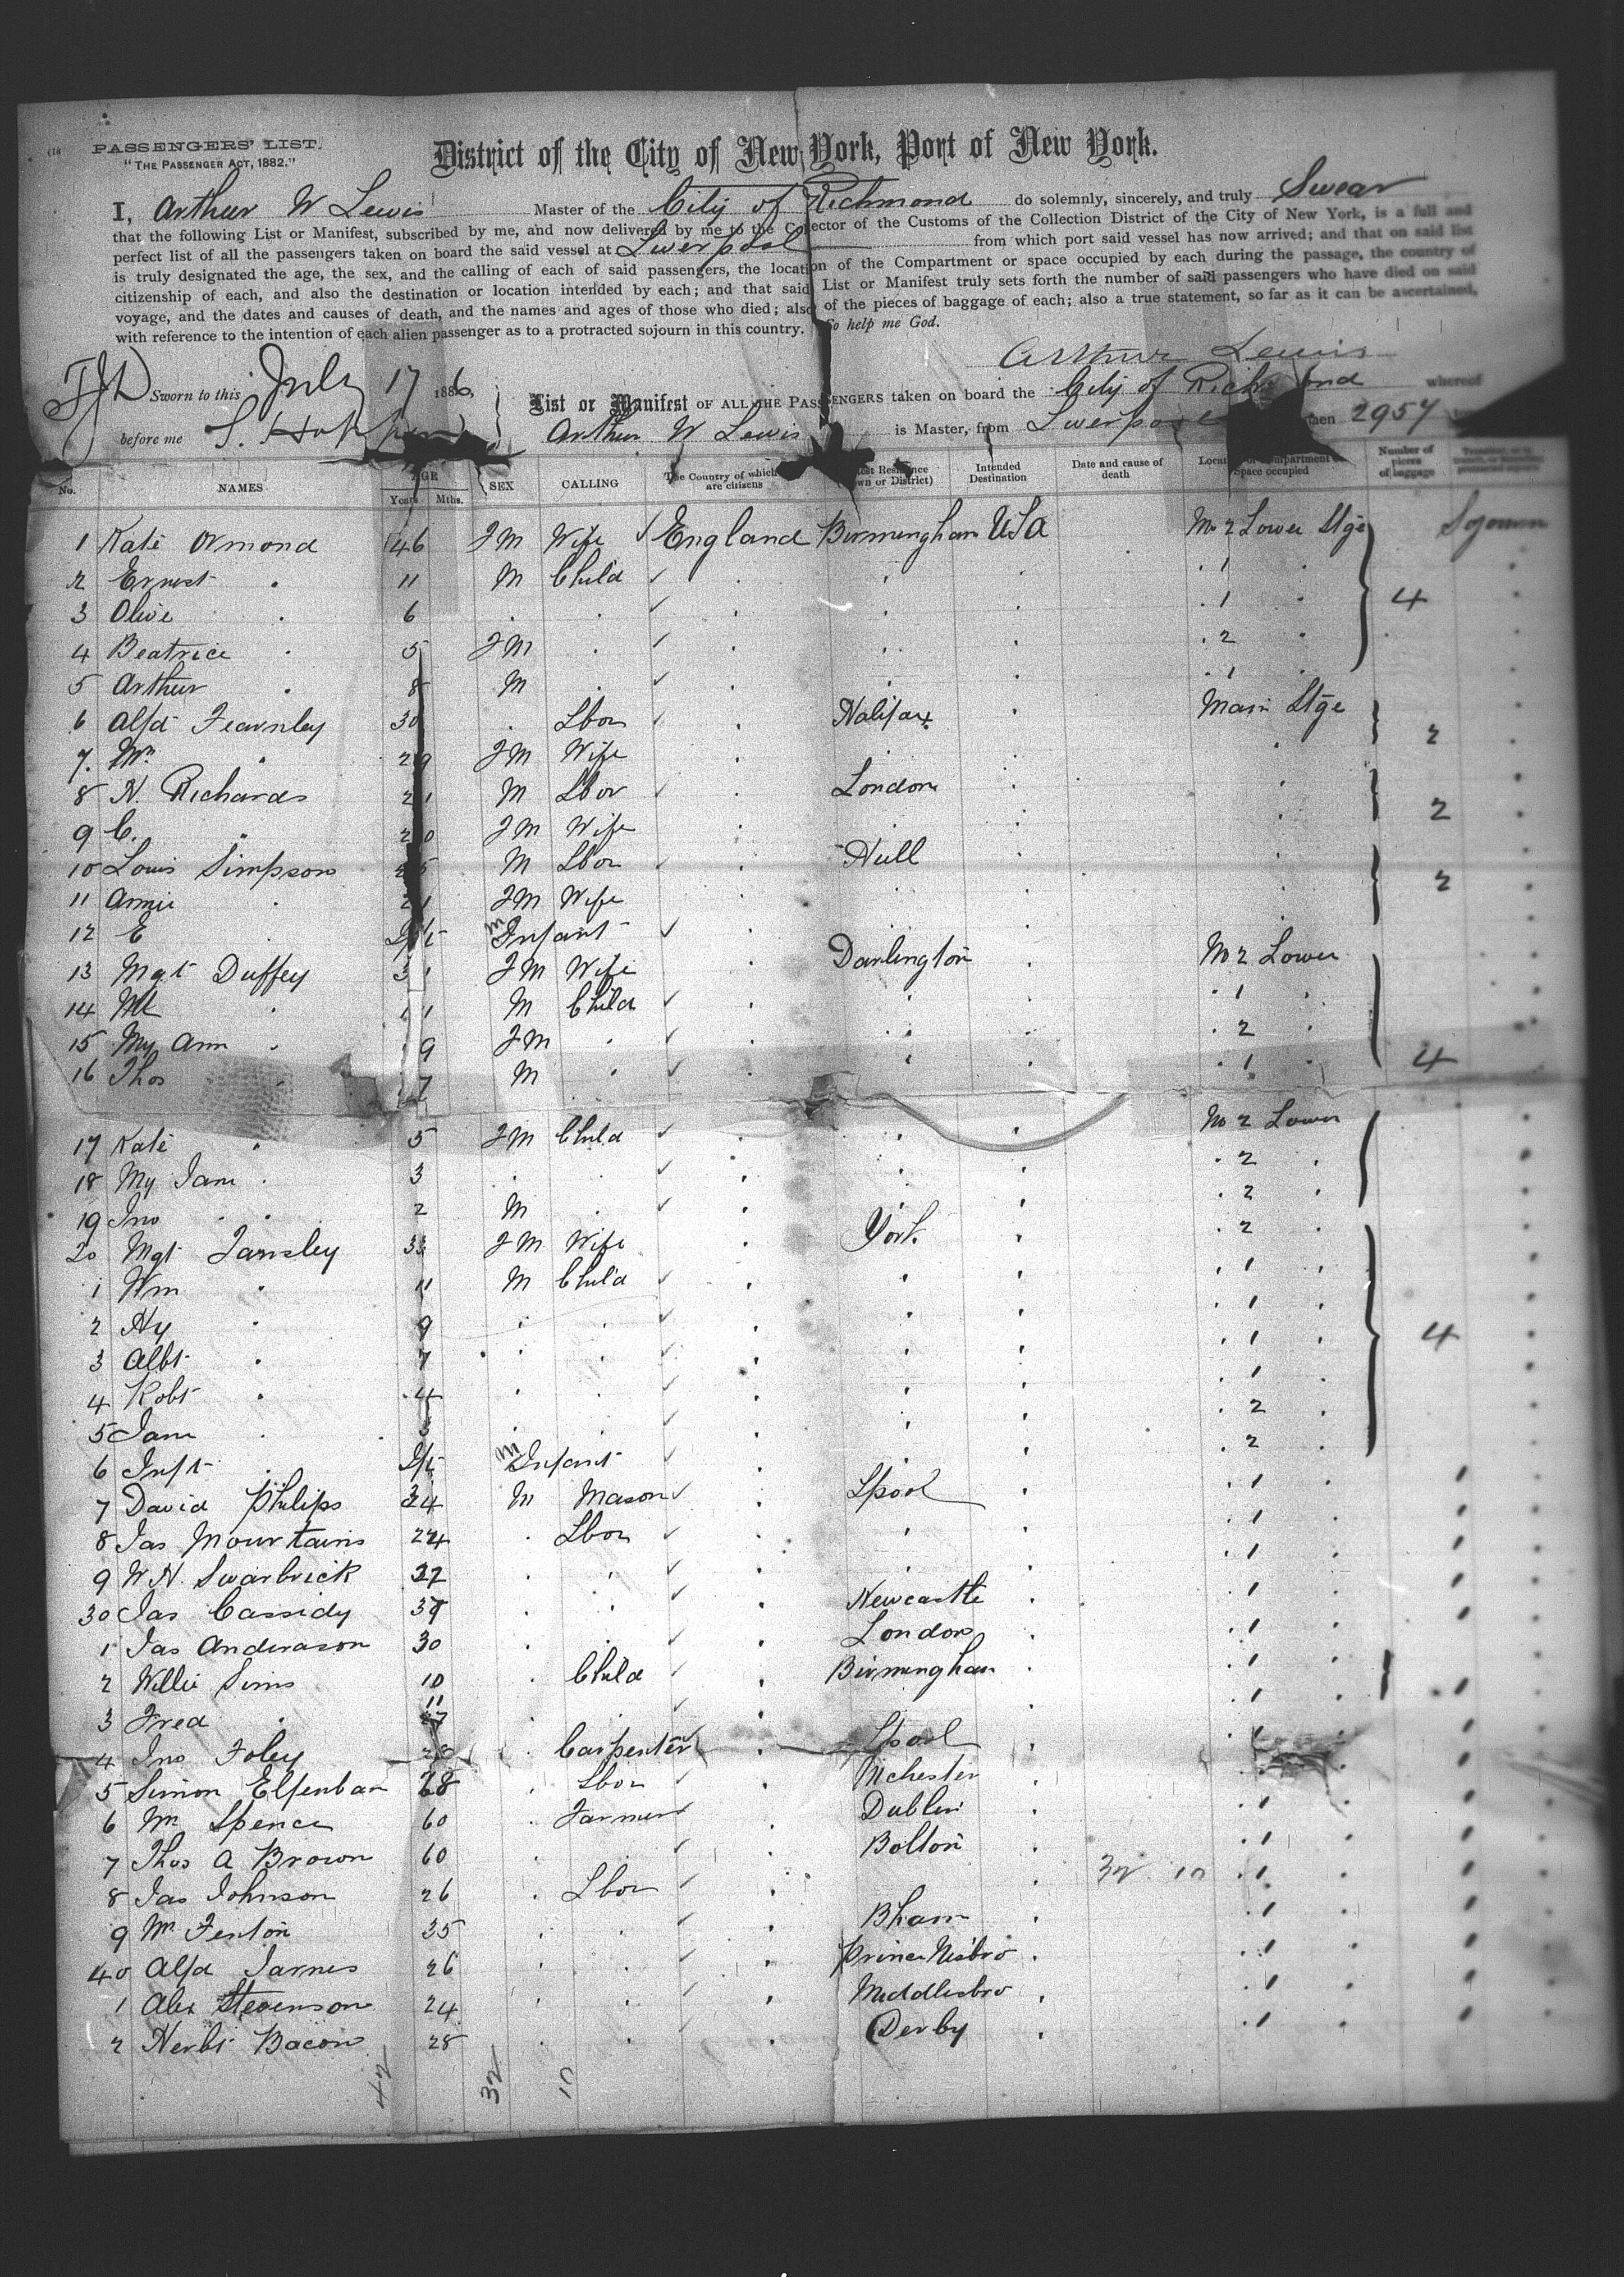 PASSENGERS' LIST.
"THE PASSENGER ACT, 1882."
District of the City of New York, Port of New York.
I, Arthur W Lewis Master of the City of Richmond do solemnly, sincerely, and truly Swear
that the following List or Manifest, subscribed by me, and now delivered by me to the Collector of the Customs of the Collection District of the City of New York, is a full and
perfect list of all the passengers taken on board the said vessel at Liverpool from which port said vessel has now arrived; and that on said list
is truly designated the age, the sex, and the calling of each of said passengers, the location of the Compartment or space occupied by each during the passage, the country of
citizenship of each, and also the destination or location intended by each; and that said List or Manifest truly sets forth the number of said passengers who have died on said
voyage, and the dates and causes of death, and the names and ages of those who died; also of the pieces of baggage of each; also a true statement, so far as it can be ascertained,
with reference to the intention of each alien passenger as to a protracted sojourn in this country. So help me God.
Arthur Lewis
Sworn to this July 17 1886,
before me
List or Manifest OF ALL THE PASSENGERS taken on board the City of Richmond whereof
Arthur W Lewis is Master, from Liverpool 2957
No. NAMES AGE Years Mths. SEX CALLING The Country of which are citizens Last Residence (Town or District) Intended Destination Date and cause of death Location of Compartment Space occupied Number of pieces of baggage
1 Kate Ormond 46 FM Wife England Birmingham USA No 2 Lower Stge Sojourn
2 Ernest 11 M Child 1
3 Olive 6 1 4
4 Beatrice 5 FM 2
5 Arthur 8 M 1
6 Alfd Fearnley 30 Lbor Halifax Main Stge
7 29 FM Wife 2
8 H. Richards 21 M Lbor London
9 C. 20 FM Wife 2
10 Louis Simpson M Lbor Hull
11 Annie 21 FM Wife 2
12 E Inft M Infant
13 Mgt Duffey 31 FM Wife Darlington No 2 Lower
14 11 M Child 1
15 My Ann 9 FM 2
16 Thos 7 M 1 4
17 Kate 5 FM Child No 2 Lower
18 My Jane 3 2
19 Jno 2 M 2
20 Mgt Tansley 33 FM Wife York 2
1 Wm 11 M Child 1
2 Hy 9 1
3 Albt 7 1 4
4 Robt 4 1
5 Jane 3 2
6 Inft Inft M Infant 2
7 David Philips 34 M Mason Lpool 1 1
8 Jas Mountains 24 Lbor 1 1
9 W H Swarbrick 1 1
30 Jas Cassidy Newcastle 1 1
1 Jas Anderason 30 London 1 1
2 Willie Sims 10 Child Birmingham 1
3 Fred 11 1 1
4 Jno Foley 28 Carpenter Lpool 1
5 Simon Elfenban 28 Lbor Mchester
6 Wm Spence 60 Farmer Dublin 1 1
7 Thos A Brown 60 Bolton 1 1
8 Jas Johnson 26 Lbor 32 10 1 1
9 Wm Fenton 35 Bham 1 1
40 Alfd Jarnes 26 1 1
1 Alex Stevenson 24 Middlesbro 1 1
2 Herbt Bacon 28 Derby 1 1
42 32 10